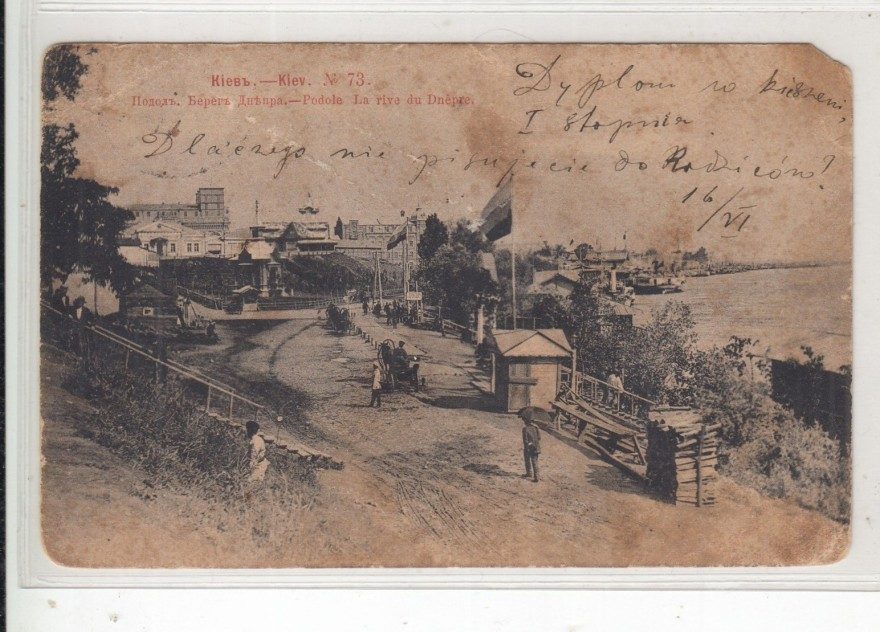 Кіевъ.—Kiev. № 73.
Подолъ. Берегъ Днѣпра.—Podole La rive du Dnèpre.
Dyplom w kieszeni,
I stopnia
Dlaczego nie pisujecie do Rodziców?
16/VI